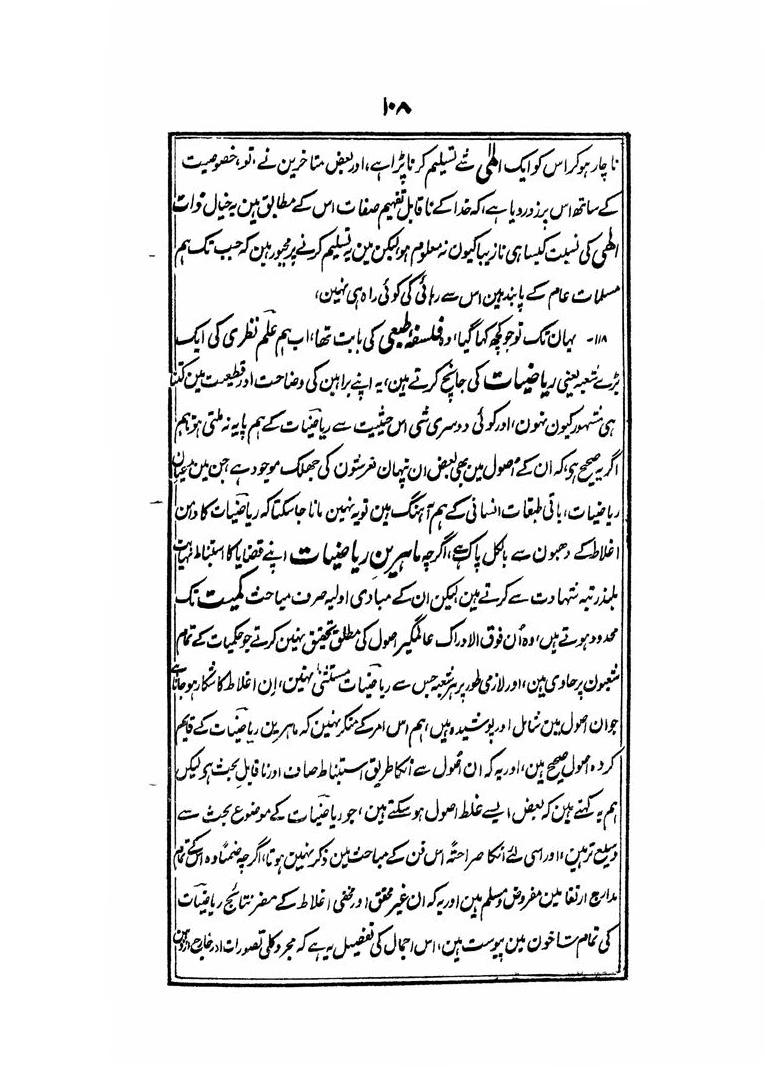 ۱۰۸
ناچار ہوکر اس کو ایک الٰہی شے تسلیم کرنا پڑا ہے، اور بعض متاخرین نے، تو، خصوصیت
کے ساتھ اس پر زور دیا ہے، کہ خدا کے ناقابل تفہیم صفات اس کے مطابق ہین یہ خیال ذات
الٰہی کی نسبت کیسا ہی نازیبا کیون نہ معلوم ہو لیکن مین یہ تسلیم کرنے پر مجبور ہین کہ جب تک ہم
مسلمات عام کے پابند ہین اس سے رہائی کی کوئی راہ ہی نہین،
۱۱۸- یہان تک تو جو کچھ کہا گیا، وہ فلسفۂ طبیعی کی بابت تھا، اب ہم علم نظری کی ایک
بڑے شعبہ یعنی ریاضیات کی جانچ کرتے ہین، یہ اپنے براہین کی وضاحت اور قطعیت مین کتنا
ہی مشہور کیون نہون، اور کوئی دوسری شی اس حیثیت سے ریاضیات کے ہم پایہ نہ ملتی ہو تاہم
اگر یہ صحیح ہی، کہ ان کے اصول مین بھی بعض ان پنہان لغزشون کی جھلک موجود ہے جن مین مدعیان
ریاضیات، باقی طبقات انسانی کے ہم آہنگ ہین تو یہ نہین مانا جا سکتا کہ ریاضیات کا دامن
اغلاط کے دھبون سے بالکل پاک ہے، اگرچہ ماہرین ریاضیات اپنے قضایا کا استنباط نہایت
بلند رتبہ شہادت سے کرتے ہین لیکن ان کے مبادی اولیہ صرف مباحث کمیت تک
محدود ہوتے ہین، وہ اُن فوق الادراک عالمگیر اصول کی مطلق تحقیق نہین کرتے جو حکمیات کے تمام
شعبون پر حاوی ہین، اور لازمی طور پر ہر شعبہ جس سے ریاضیات مستثنیٰ نہین، اِن اغلاط کا شکار ہو جاتا ہے
جو ان اصول مین شامل اور پوشیدہ ہین، ہم اس امر کے منکر نہین کہ ماہرین ریاضیات کے قایم
کردہ اصول صحیح ہین، اور یہ کہ ان اصول سے انکا طریق استنباط صاف اور ناقابل بحث ہو لیکن
ہم یہ کہتے ہین کہ بعض ایسے غلط اصول ہو سکتے ہین، جو ریاضیات کے موضوع بحث سے
وسیع تر ہین، اور اسی لئے انکا صراحتہً اس فن کے مباحث مین ذکر نہین ہوتا، اگرچہ ضمناً وہ اسکے تمام
مدارج ارتقا مین مفروض و مسلم ہین اور یہ کہ ان غیر محقق اور مخفی اغلاط کے مضر نتائج ریاضیات
کی تمام شاخون مین پیوست ہین، اس اجمال کی تفصیل یہ ہے کہ مجرد کلی تصورات اور خارج از ذہن